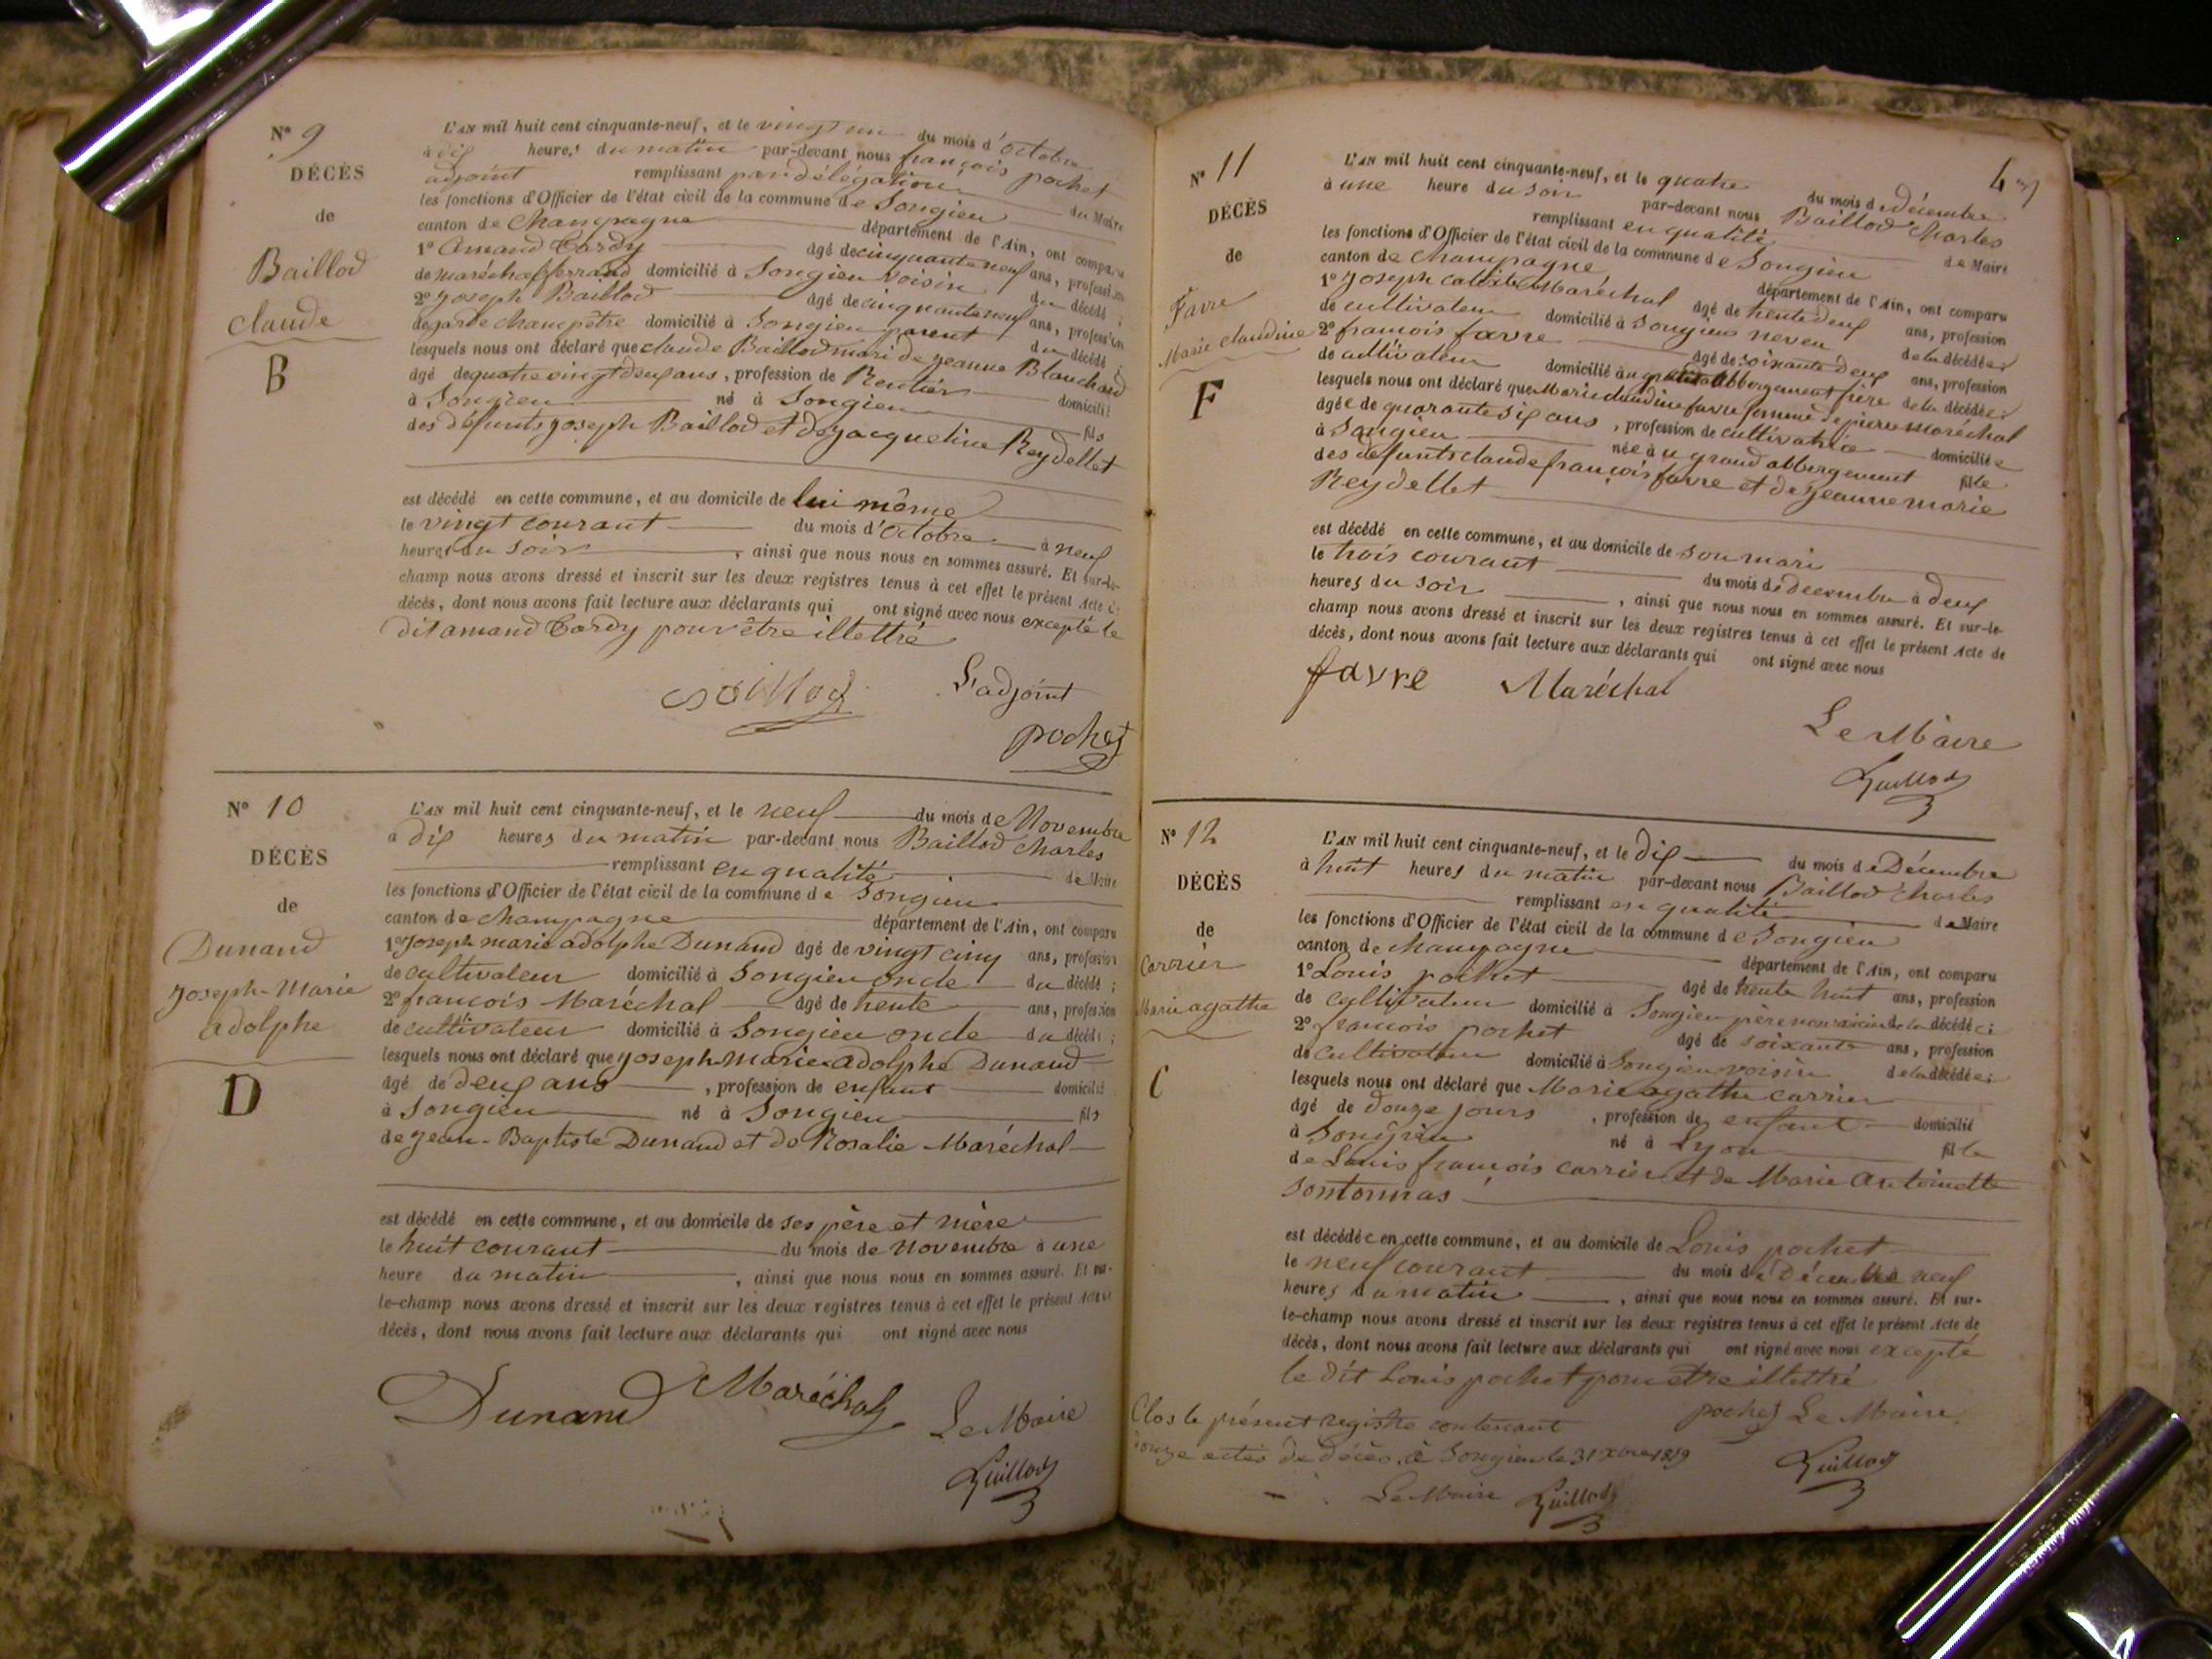 N° 9
DÉCÈS
de
Baillod
claude
B
L'AN mil huit cent cinquante-neuf, et le vingt un du mois d'octobre
à dix heures du matin par-devant nous françois pochet
adjoint remplissant par délégation du Maire
les fonctions d'Officier de l'état civil de la commune de Songieu
canton de Champagne département de l'Ain, ont comparu
1° Amand Cardy âgé de cinquante neuf ans, profession
de maréchal ferrand domicilié à Songieu voisin du décédé ;
2° Joseph Baillod âgé de cinquante neuf ans, profession
de garde champêtre domicilié à Songieu parent du décédé ;
lesquels nous ont déclaré que claude Baillod mari de jeanne Blanchard
âgé de quatre vingt deux ans, profession de Rentier domicilié
à Songieu né à Songieu fils
des défunts joseph Baillod et de jacqueline Reydellet
est décédé en cette commune, et au domicile de lui même
le vingt courant du mois d'octobre à neuf
heures du soir, ainsi que nous nous en sommes assuré. Et sur-le-
champ nous avons dressé et inscrit sur les deux registres tenus à cet effet le présent Acte de
décès, dont nous avons fait lecture aux déclarants qui ont signé avec nous excepté le
dit amand Cardy pour être illettré
Baillod L'adjoint
pochet
N° 10
DÉCÈS
de
Dunand
joseph-Marie
adolphe
D
L'AN mil huit cent cinquante-neuf, et le neuf du mois de Novembre
à dix heures du matin par-devant nous Baillod Charles
remplissant en qualité de Maire
les fonctions d'Officier de l'état civil de la commune de Songieu
canton de champagne département de l'Ain, ont comparu
1° Joseph marie adolphe Dunand âgé de vingt cinq ans, profession
de cultivateur domicilié à Songieu oncle du décédé ;
2° francois Maréchal âgé de trente ans, profession
de cultivateur domicilié à Songieu oncle du décédé ;
lesquels nous ont déclaré que joseph-marie-adolphe Dunand
âgé de deux ans, profession de enfant domicilié
à Songieu né à Songieu fils
de jean-Baptiste Dunand et de Rosalie Maréchal
est décédé en cette commune, et au domicile de ses père et mère
le huit courant du mois de novembre à une
heure du matin, ainsi que nous nous en sommes assuré. Et sur-
le-champ nous avons dressé et inscrit sur les deux registres tenus à cet effet le présent Acte de
décès, dont nous avons fait lecture aux déclarants qui ont signé avec nous
Dunand Maréchal Le Maire
Baillod
N° 11
DÉCÈS
de
Favre
Marie claudine
F
L'AN mil huit cent cinquante-neuf, et le quatre du mois de décembre
à une heure du soir par-devant nous Baillod Charles
remplissant en qualité de Maire
les fonctions d'Officier de l'état civil de la commune de Songieu
canton de champagne département de l'Ain, ont comparu
1° Joseph calixte Maréchal âgé de trente deux ans, profession
de cultivateur domicilié à Songieu neveu de la décédée ;
2° francois favre âgé de soixante deux ans, profession
de cultivateur domicilié au abbergement frère de la décédée ;
lesquels nous ont déclaré que Marie claudine favre femme de pierre Maréchal
âgée de quarante six ans, profession de cultivatrice domiciliée
à Songieu née au grand abbergement fille
des défunts claude françois favre et de jeanne marie
Reydellet
est décédé en cette commune, et au domicile de son mari
le trois courant du mois de décembre à deux
heures du soir, ainsi que nous nous en sommes assuré. Et sur-le-
champ nous avons dressé et inscrit sur les deux registres tenus à cet effet le présent Acte de
décès, dont nous avons fait lecture aux déclarants qui ont signé avec nous
favre Maréchal
Le Maire
Baillod
N° 12
DÉCÈS
de
Carrier
Marie agathe
C
L'AN mil huit cent cinquante-neuf, et le dix du mois de Décembre
à huit heures du matin par-devant nous Baillod Charles
remplissant en qualité de Maire
les fonctions d'Officier de l'état civil de la commune de Songieu
canton de champagne département de l'Ain, ont comparu
1° Louis pochet âgé de trente huit ans, profession
de cultivateur domicilié à Songieu père nourricier de la décédée ;
2° francois pochet âgé de soixante ans, profession
de cultivateur domicilié à Songieu voisin de la décédée ;
lesquels nous ont déclaré que Marie agathe carrier
âgé de douze jours, profession de enfant domicilié
à Songieu né à Lyon fille
de Louis francois carrier et de Marie Antoinette
Sontonnas
est décédée en cette commune, et au domicile de Louis pochet
le neuf courant du mois de Décembre à neuf
heures du matin, ainsi que nous nous en sommes assuré. Et sur-
le-champ nous avons dressé et inscrit sur les deux registres tenus à cet effet le présent Acte de
décès, dont nous avons fait lecture aux déclarants qui ont signé avec nous excepté
le dit Louis pochet pour être illettré
pochet Le Maire
Baillod
Clos le présent registre contenant
douze actes de décès, à Songieu le 31 xbre 1859
Le Maire Baillod